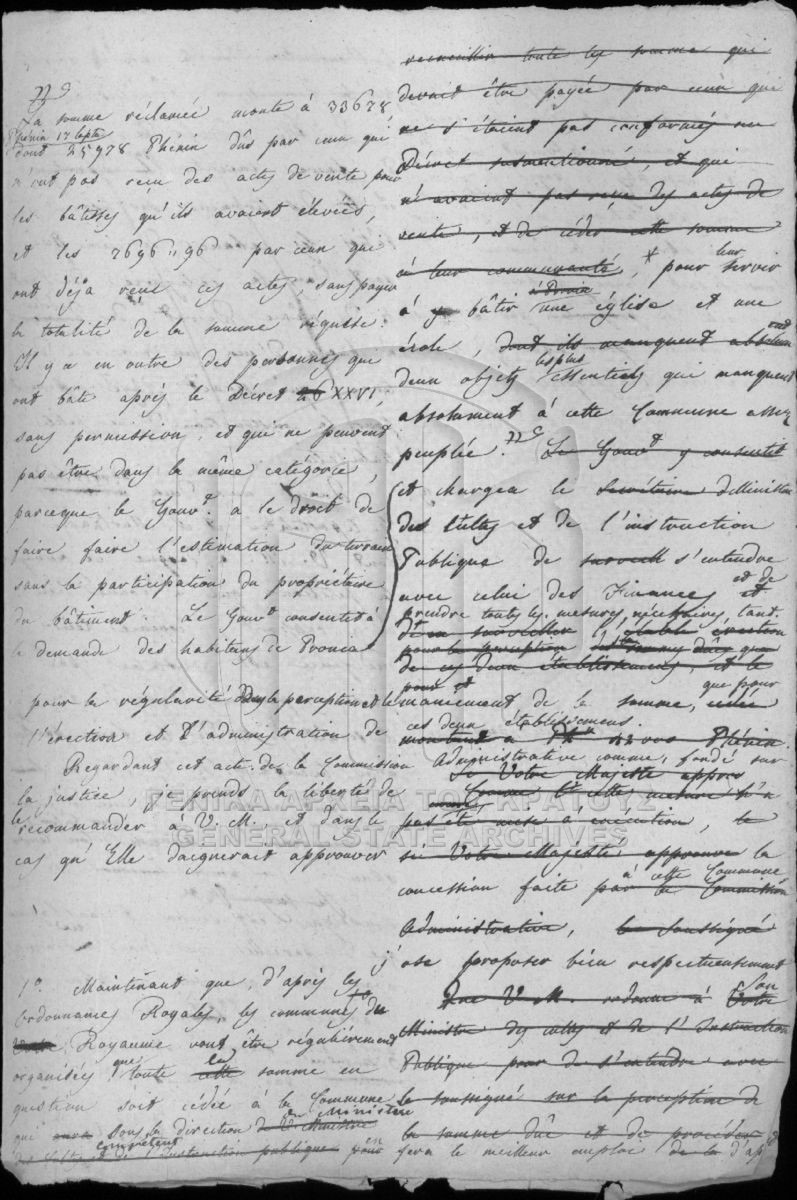 La somme réclamée monte à 33678
Phénix 17 lepta
dont 25978 Phénix dûs par ceux qui
n'ont pas reçu des actes de vente pour
les bâtisses qu'ils avaient élevées,
et les 7696 " 96 par ceux qui
ont déja reçu ces actes, sans payer
la totalité de la somme réquise.
Il y a en outre des personnes que
ont bâte après le Décret 26 XXVI,
sans permission, et qui ne peuvent
pas être dans la même catégorie,
parceque le Gouvt. a le droit de
faire faire l'estimation du terrain
sans la participation du propriétaire
du bâtiment. Le Gouvt consentet à
la demande des habitans de Pronia
pour la régularité dans la perception et le
l'érection et l'administration de
Regardant cet acte de la Commission
la justice, je prends la liberté de
le recommander à V. M., et dans le
cas qu'Elle daignerait approuver
1o. Maintenant que, d'après les
Ordonnances Royales, les communes du
Royaume vont être régulièrement
organisées, que toute cette la somme en
question soit cédée à la Commune
qui sous la direction du Ministère
des Cultes et de l'instruction publique pour en
recueillir toute les somme qui
devait être payée par ceux qui
ne s'étaient pas conformés au
Décret susmentionné, et qui
n'avaient pas reçu des actes de
vente, et de céder cette somme
à leur communauté, * pour leur servir
à y bâtir à Pronia une église et une
école, dont ils manquent absolument
deux objets les plus essentiels qui manquent
absolument à cette Commune assez
peuplée. Le Gouvt y consentit
et chargea le Secrétaire d Ministre
des Cultes et de l'instruction
Publique de surveill s'entendre
avec celui des Finances et et de
prendre toutes les mesures nécessaires tant
pour la perception
de ces deux établissemens, et le
pour et
maniement de la somme, que pour
ces deux établissemens.
montant à 42000 Phénix.
Administrative comme fondé sur
Si Votre Majesté approu
Comme cette mesure n'a
pas été mise à exécution, le
si Votre Majesté approuve la
concession faite par la Commission à cette Commune
Administrative, le soussigné
j'ose proposer bien respectueusement
Que V. M. ordonne à Votre Son
Ministre des cultes et de l'Instruction
Publique pour de s'entendre avec
le soussigné sur la perception de
la somme due et de procéder
fera le meilleur emploi de la